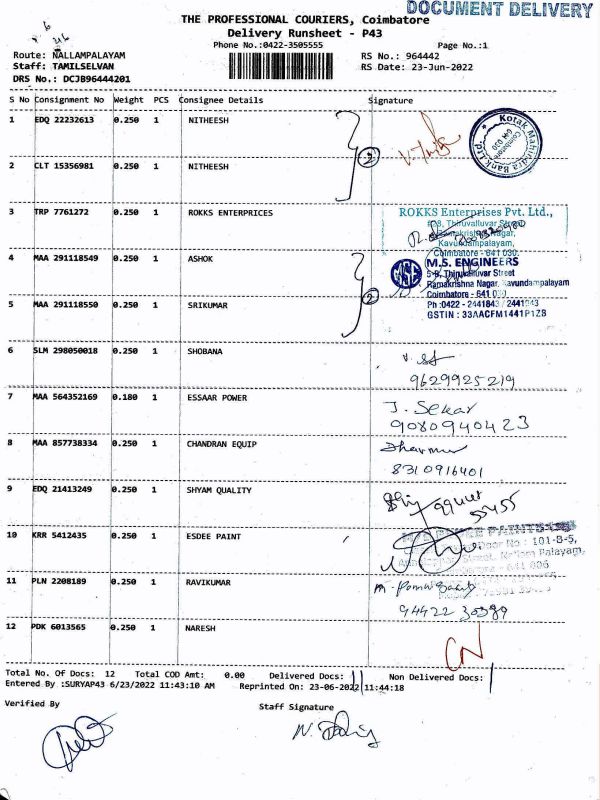 DOCUMENT DELIVERY
THE PROFESSIONAL COURIERS, Coimbatore
Delivery Runsheet - P43
Phone No.:0422-3505555
Page No.:1
Route: NALLAMPALAYAM
RS No.: 964442
Staff: TAMILSELVAN
RS Date: 23-Jun-2022
DRS No.: DCJB96444201
S No Consignment No Weight PCS Consignee Details Signature
1 EDQ 22232613 0.250 1 NITHEESH
Kotak Mahindra Bank Ltd.
Coimbatore
2 CLT 15356981 0.250 1 NITHEESH
2
3 TRP 7761272 0.250 1 ROKKS ENTERPRICES
ROKKS Enterprises Pvt. Ltd.,
Thiruvalluvar Street
Ramakrishna Nagar,
Kavundampalayam,
Coimbatore - 641 030.
4 MAA 291118549 0.250 1 ASHOK
MSE
M.S. ENGINEERS
5-9, Thiruvalluvar Street
Ramakrishna Nagar, Kavundampalayam
Coimbatore - 641 030
Ph :0422 - 2441843 / 2441943
GSTIN : 33AACFM1441P1Z8
5 MAA 291118550 0.250 1 SRIKUMAR
2
6 SLM 298050018 0.250 1 SHOBANA
9629925219
7 MAA 564352169 0.180 1 ESSAAR POWER
J. Sekar
9080940423
8 MAA 857738334 0.250 1 CHANDRAN EQUIP
8310916401
9 EDQ 21413249 0.250 1 SHYAM QUALITY
10 KRR 5412435 0.250 1 ESDEE PAINT
PAINTS
Door No : 101-B-5,
Street, Nallam Palayam,
641 006
11 PLN 2208189 0.250 1 RAVIKUMAR
94422 30389
12 PDK 6013565 0.250 1 NARESH
CN
Total No. Of Docs: 12 Total COD Amt: 0.00 Delivered Docs: 11 Non Delivered Docs: 1
Entered By :SURYAP43 6/23/2022 11:43:10 AM Reprinted On: 23-06-2022 11:44:18
Verified By
Staff Signature